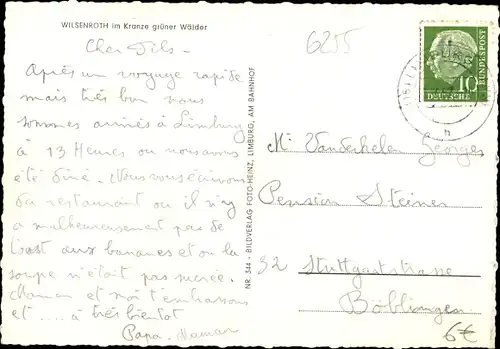 WILSENROTH im Kranze grüner Wälder
6255
Cher Fils -
Après un voyage rapide
mais très bon nous
sommes arrivés à Limburg
à 13 Heures ou nous avons
été diné. Nous vous écrivons
du restaurant ou il n'y
a malheureusement pas de
toast aux bananes et ou la
soupe n'était pas sucrée.
Maman et moi t'embrassons
et .... à très bientot
Papa. Maman
NR. 344 - BILDVERLAG FOTO-HEINZ, LIMBURG, AM BAHNHOF
DEUTSCHE BUNDESPOST
10
h
Mr Vanderhelen Georges
Pension Steiner
32 Stuttgartstrasse
Böblingen
6€